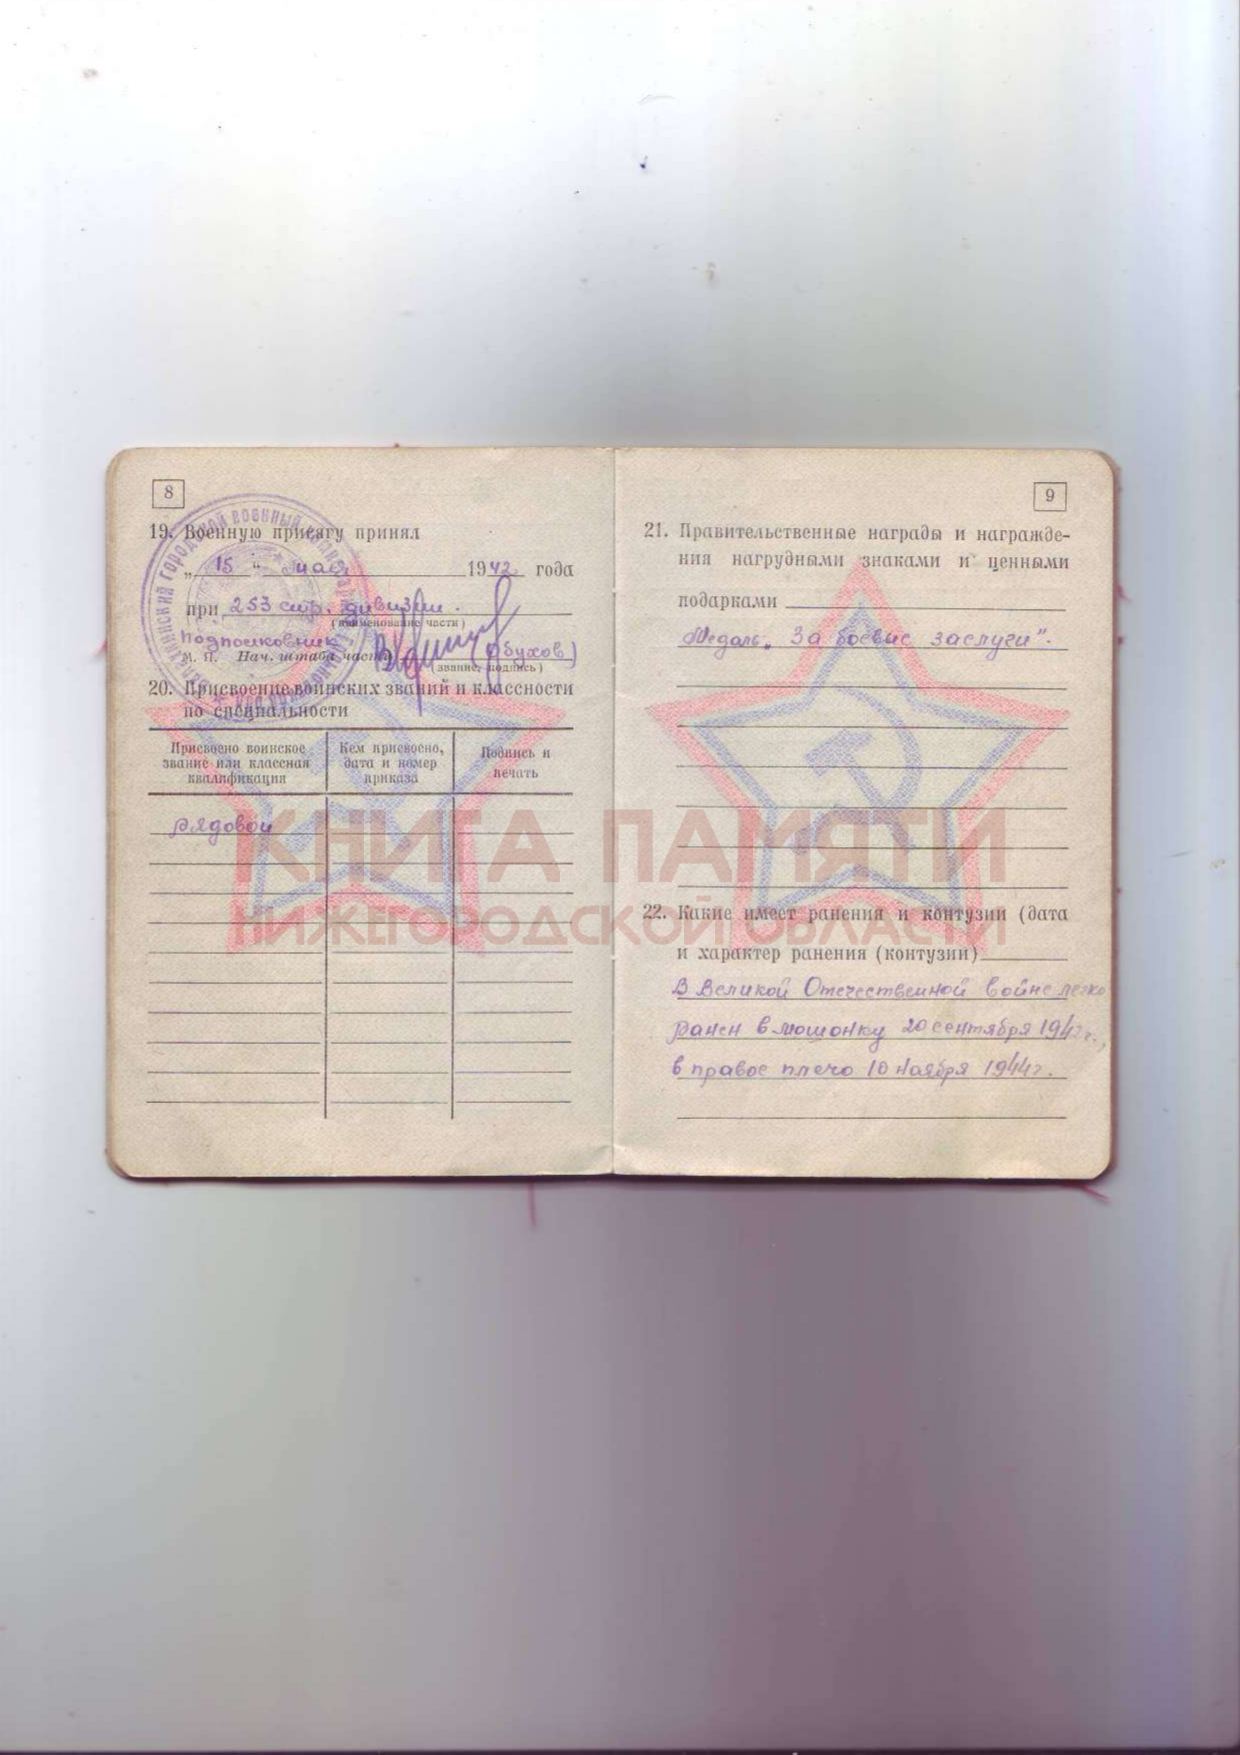 8
19. Военную присягу принял
„ 15 “ мая 1942 года
при 253 стр. дивизии.
(наименование части)
Подполковник
М. П. Нач. штаба части (Обухов)
(звание, подпись)
20. Присвоение воинских званий и классности
по специальности
Присвоено воинское
звание или классная
квалификация
Кем присвоено,
дата и номер
приказа
Подпись и
печать
рядовой
9
21. Правительственные награды и награжде-
ния нагрудными знаками и ценными
подарками
Медаль „За боевые заслуги".
22. Какие имеет ранения и контузии (дата
и характер ранения (контузии)
В Великой Отечественной войне легко
ранен в мошонку 20 сентября 1942 г.,
в правое плечо 10 ноября 1944 г.
КНИГА ПАМЯТИ
НИЖЕГОРОДСКОЙ ОБЛАСТИ